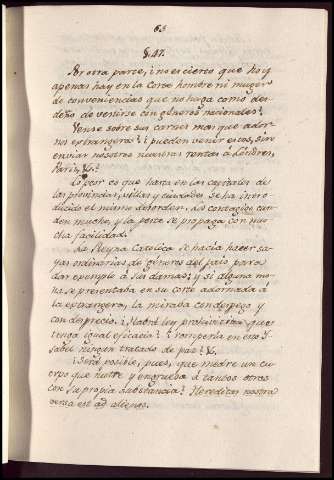 65
§. 47.
Por otra parte, ¿no es cierto que hoy
apenas hay en la Corte hombre ni muger
de conveniencias que no haga como des-
deño de vestirse con géneros nacionales?
Vense sobre sus carnes mas que ador-
nos extrangeros? ¿pueden venir estos, sin
enviar nosotros nuestras rentas á Lóndres,
París, &c.?
Lo peor es que hasta en las capitales de
las provincias, villas y ciudades se ha intro-
ducido el mismo desorden. Los contagios cun-
den mucho, y la peste se propaga con mu-
cha facilidad.
La Reyna Católica se hacía hacer sa-
yas ordinarias de géneros del país para
dar exemplo á sus damas; y si alguna mo-
na se presentaba en su corte adornada á
la extrangera, la miraba con despego y
con desprecio. ¿Habrá ley prohibitiva que
tenga igual eficacia? ¿romperia en esto
Isabel ningun tratado de paz? &.
¿Será posible, pues, que medre un cu-
erpo que nutre y engruesa á tantos otros
con su propia substancia? Hereditas nostra
versa est ad alienos.